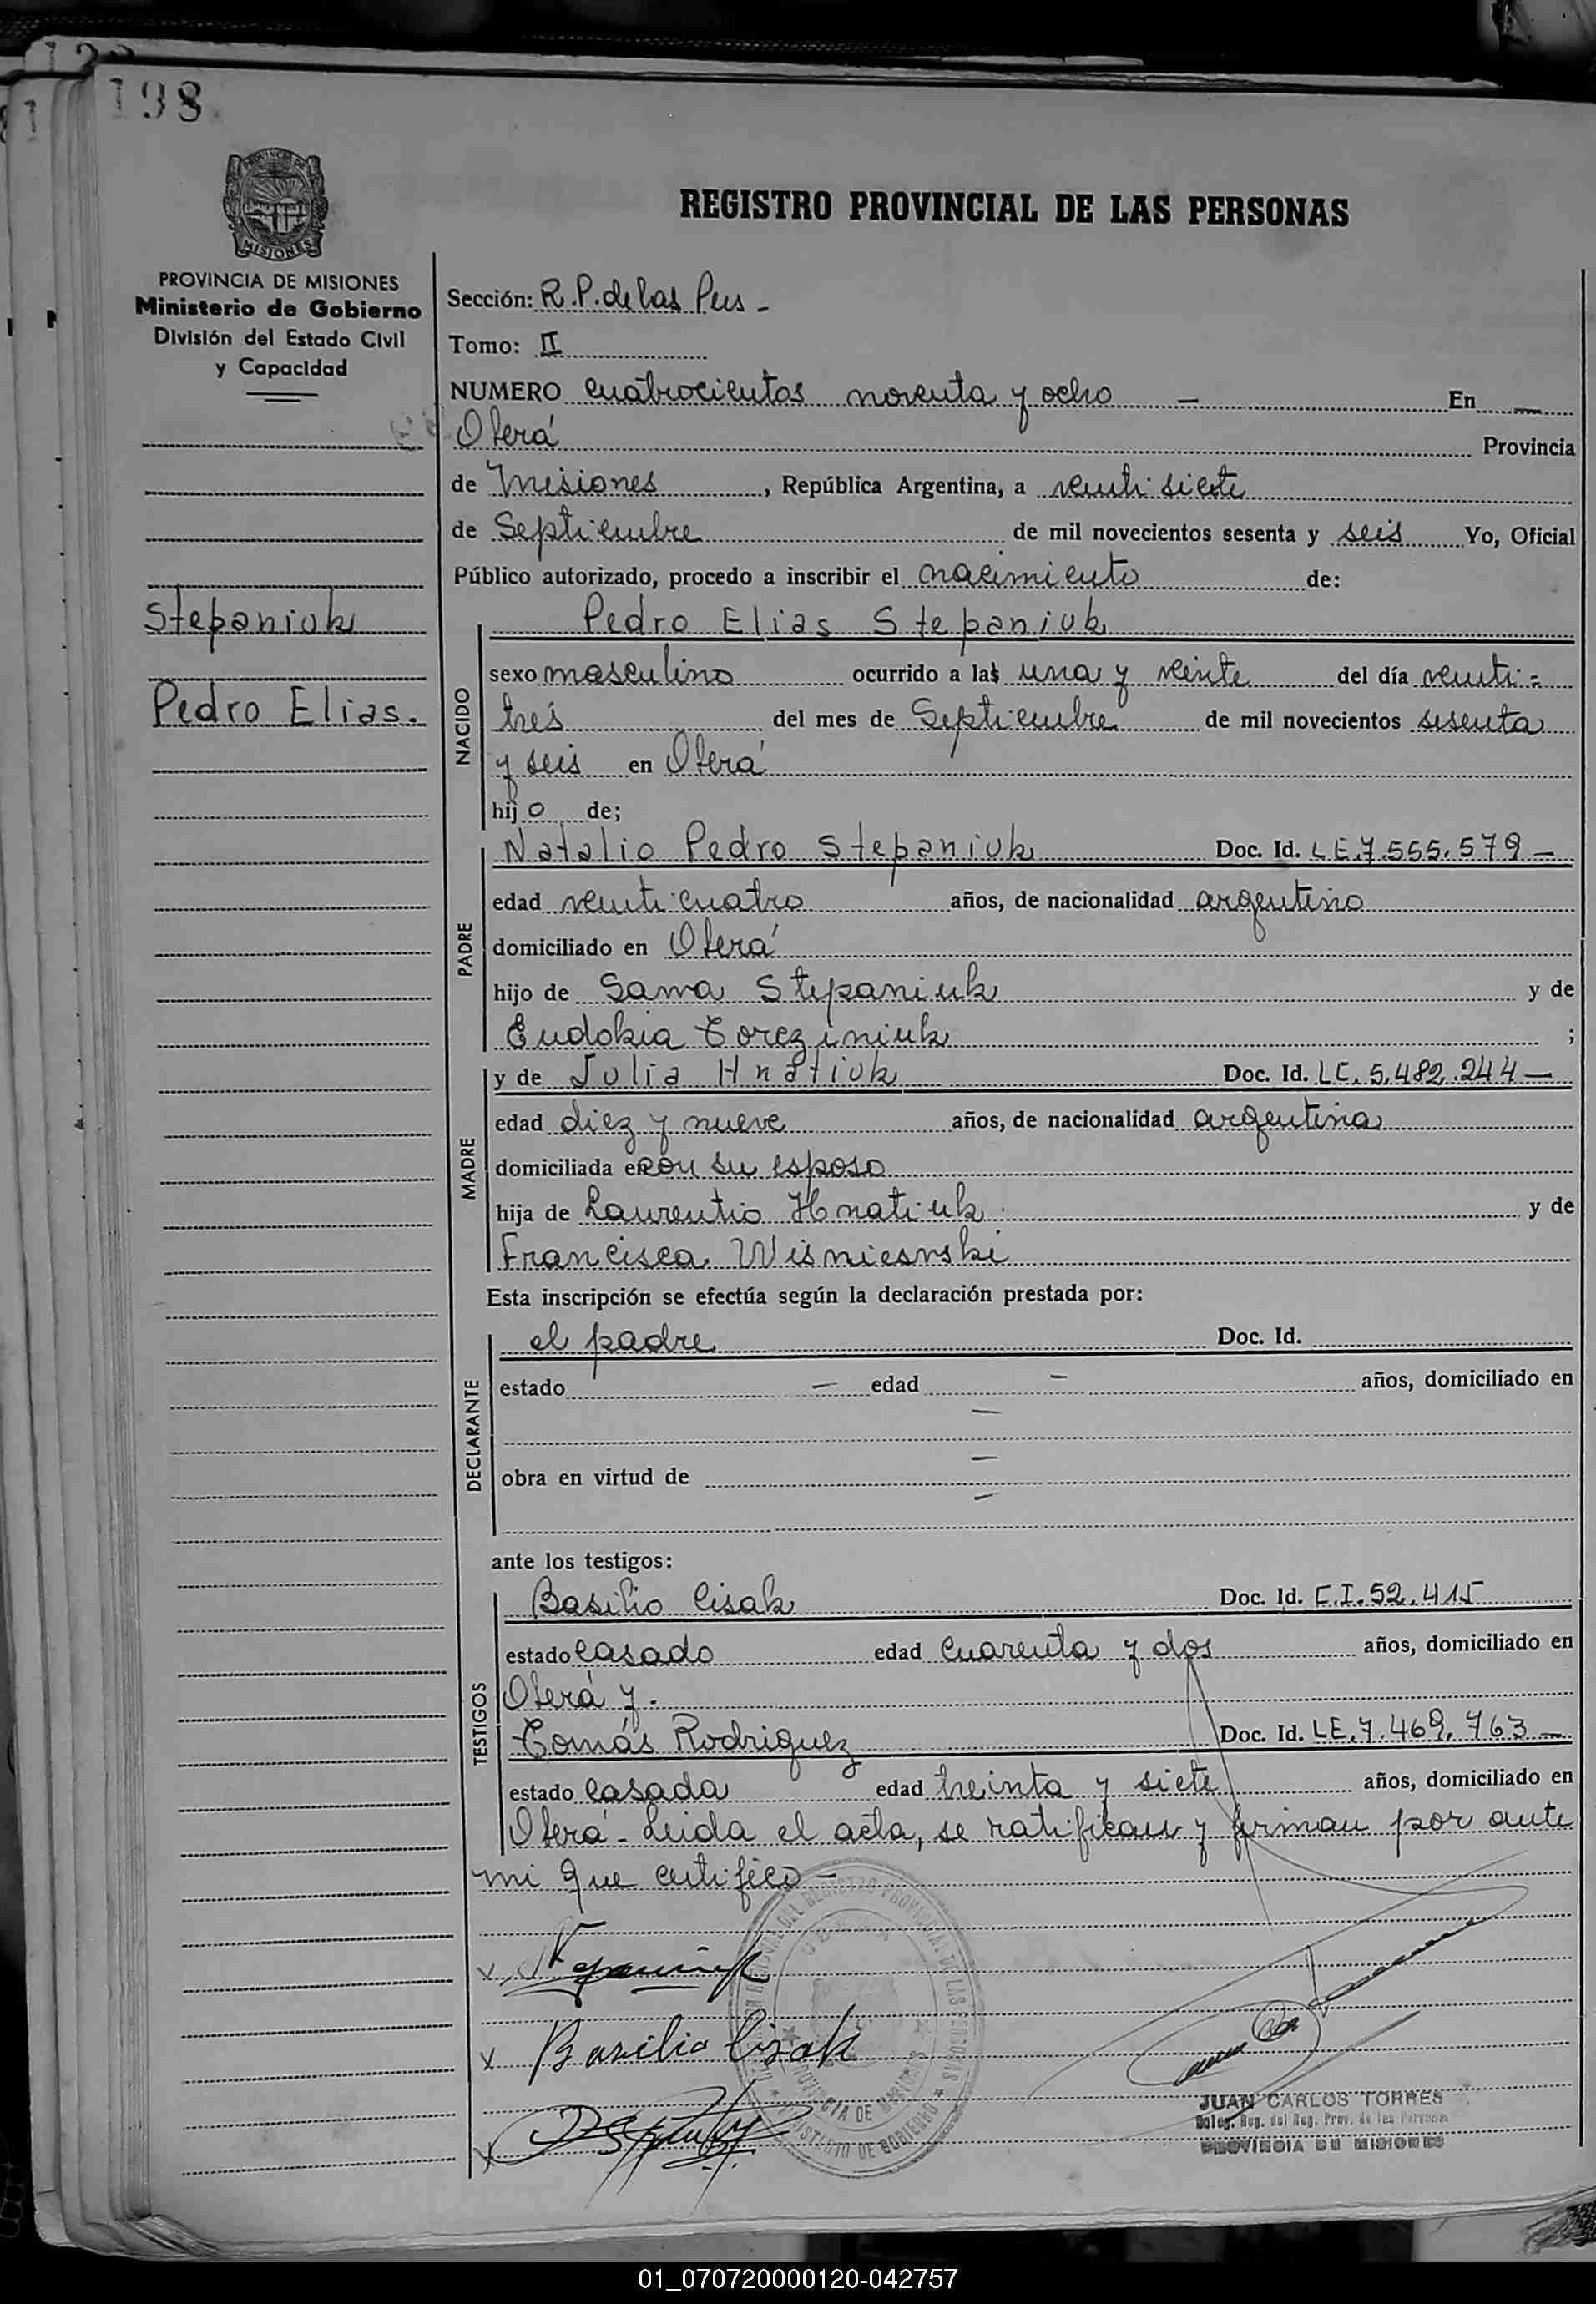 198
PROVINCIA DE MISIONES
Ministerio de Gobierno
División del Estado Civil
y Capacidad
Stepaniuk
Pedro Elias.
REGISTRO PROVINCIAL DE LAS PERSONAS
Sección: R.P. de las Pers -
Tomo: II
NUMERO cuatrocientos noventa y ocho - En -
Oberá Provincia
de Misiones, República Argentina, a veinti siete
de Septiembre de mil novecientos sesenta y seis Yo, Oficial
Público autorizado, procedo a inscribir el nacimiento de:
NACIDO
Pedro Elias Stepaniuk
sexo masculino ocurrido a las una y veinte del día veinti=
trés del mes de Septiembre de mil novecientos sesenta
y seis en Oberá
hijo de;
PADRE
Natalio Pedro Stepaniuk Doc. Id. LE.7.555.579-
edad veinticuatro años, de nacionalidad argentino
domiciliado en Oberá
hijo de Sawa Stepaniuk y de
Eudokia Toreziniuk ;
MADRE
y de Julia Hnatiuk Doc. Id. LC.5.482.244-
edad diez y nueve años, de nacionalidad argentina
domiciliada en con su esposo
hija de Laurentio Hnatiuk y de
Francisca Wisniewski
Esta inscripción se efectúa según la declaración prestada por:
DECLARANTE
el padre Doc. Id.
estado - edad - años, domiciliado en
-
obra en virtud de -
-
ante los testigos:
TESTIGOS
Basilio Cisak Doc. Id. C.I.52.415
estado casado edad cuarenta y dos años, domiciliado en
Oberá y.
Tomás Rodriguez Doc. Id. LE.7.469.763-
estado casada edad treinta y siete años, domiciliado en
Oberá - Leida el acta, se ratifican y firman por ante
mi que certifico-
x Basilio Cisak
JUAN CARLOS TORRES
Deleg. Reg. del Reg. Prov. de las Personas
PROVINCIA DE MISIONES
01_070720000120-042757